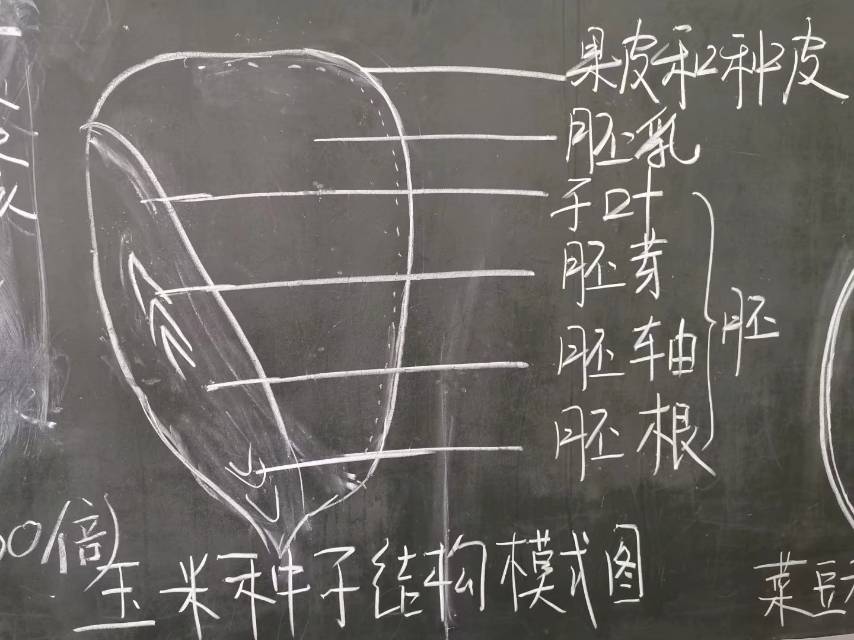 果皮和种皮
胚乳
子叶
胚芽
胚轴
胚根
胚
0倍)
玉米种子结构模式图
菜豆